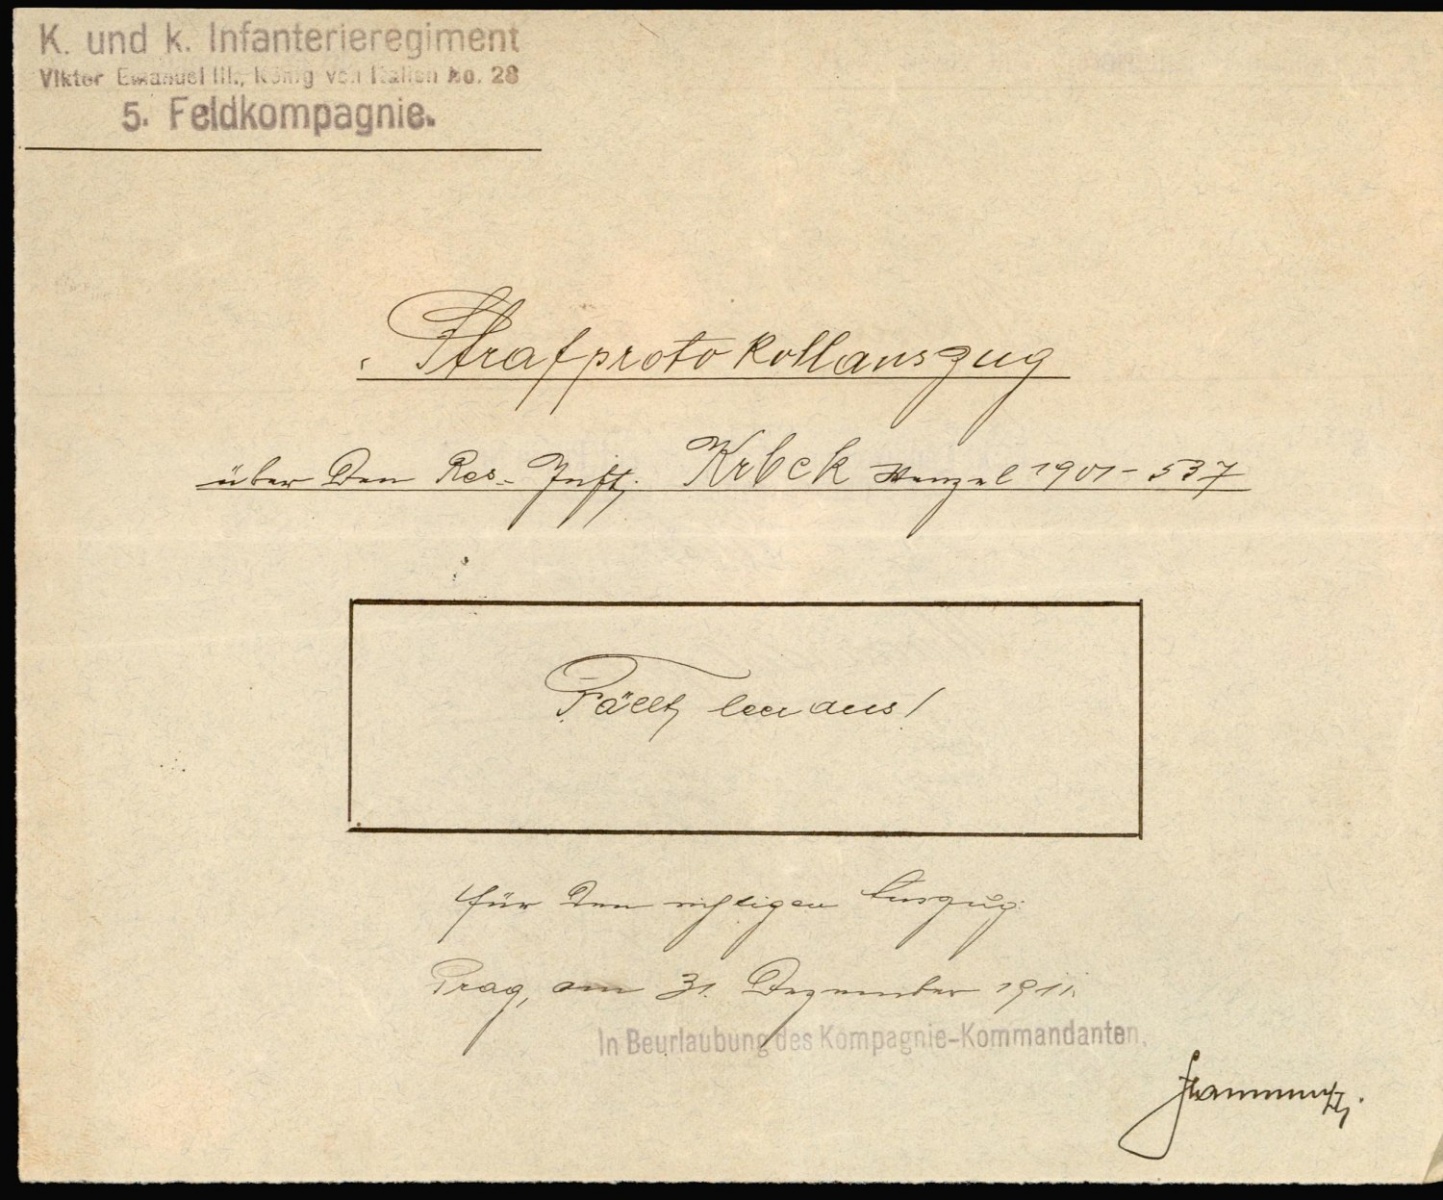 K. und k. Infanterieregiment
Viktor Emanuel III., König von Italien No. 28
5. Feldkompagnie.
Strafprotokollauszug
über den Res. Inft. Krbek Wenzel 1901-537
Fällt leer aus!
für den richtigen Auszug:
Prag, am 31. Dezember 1911.
In Beurlaubung des Kompagnie-Kommandanten.